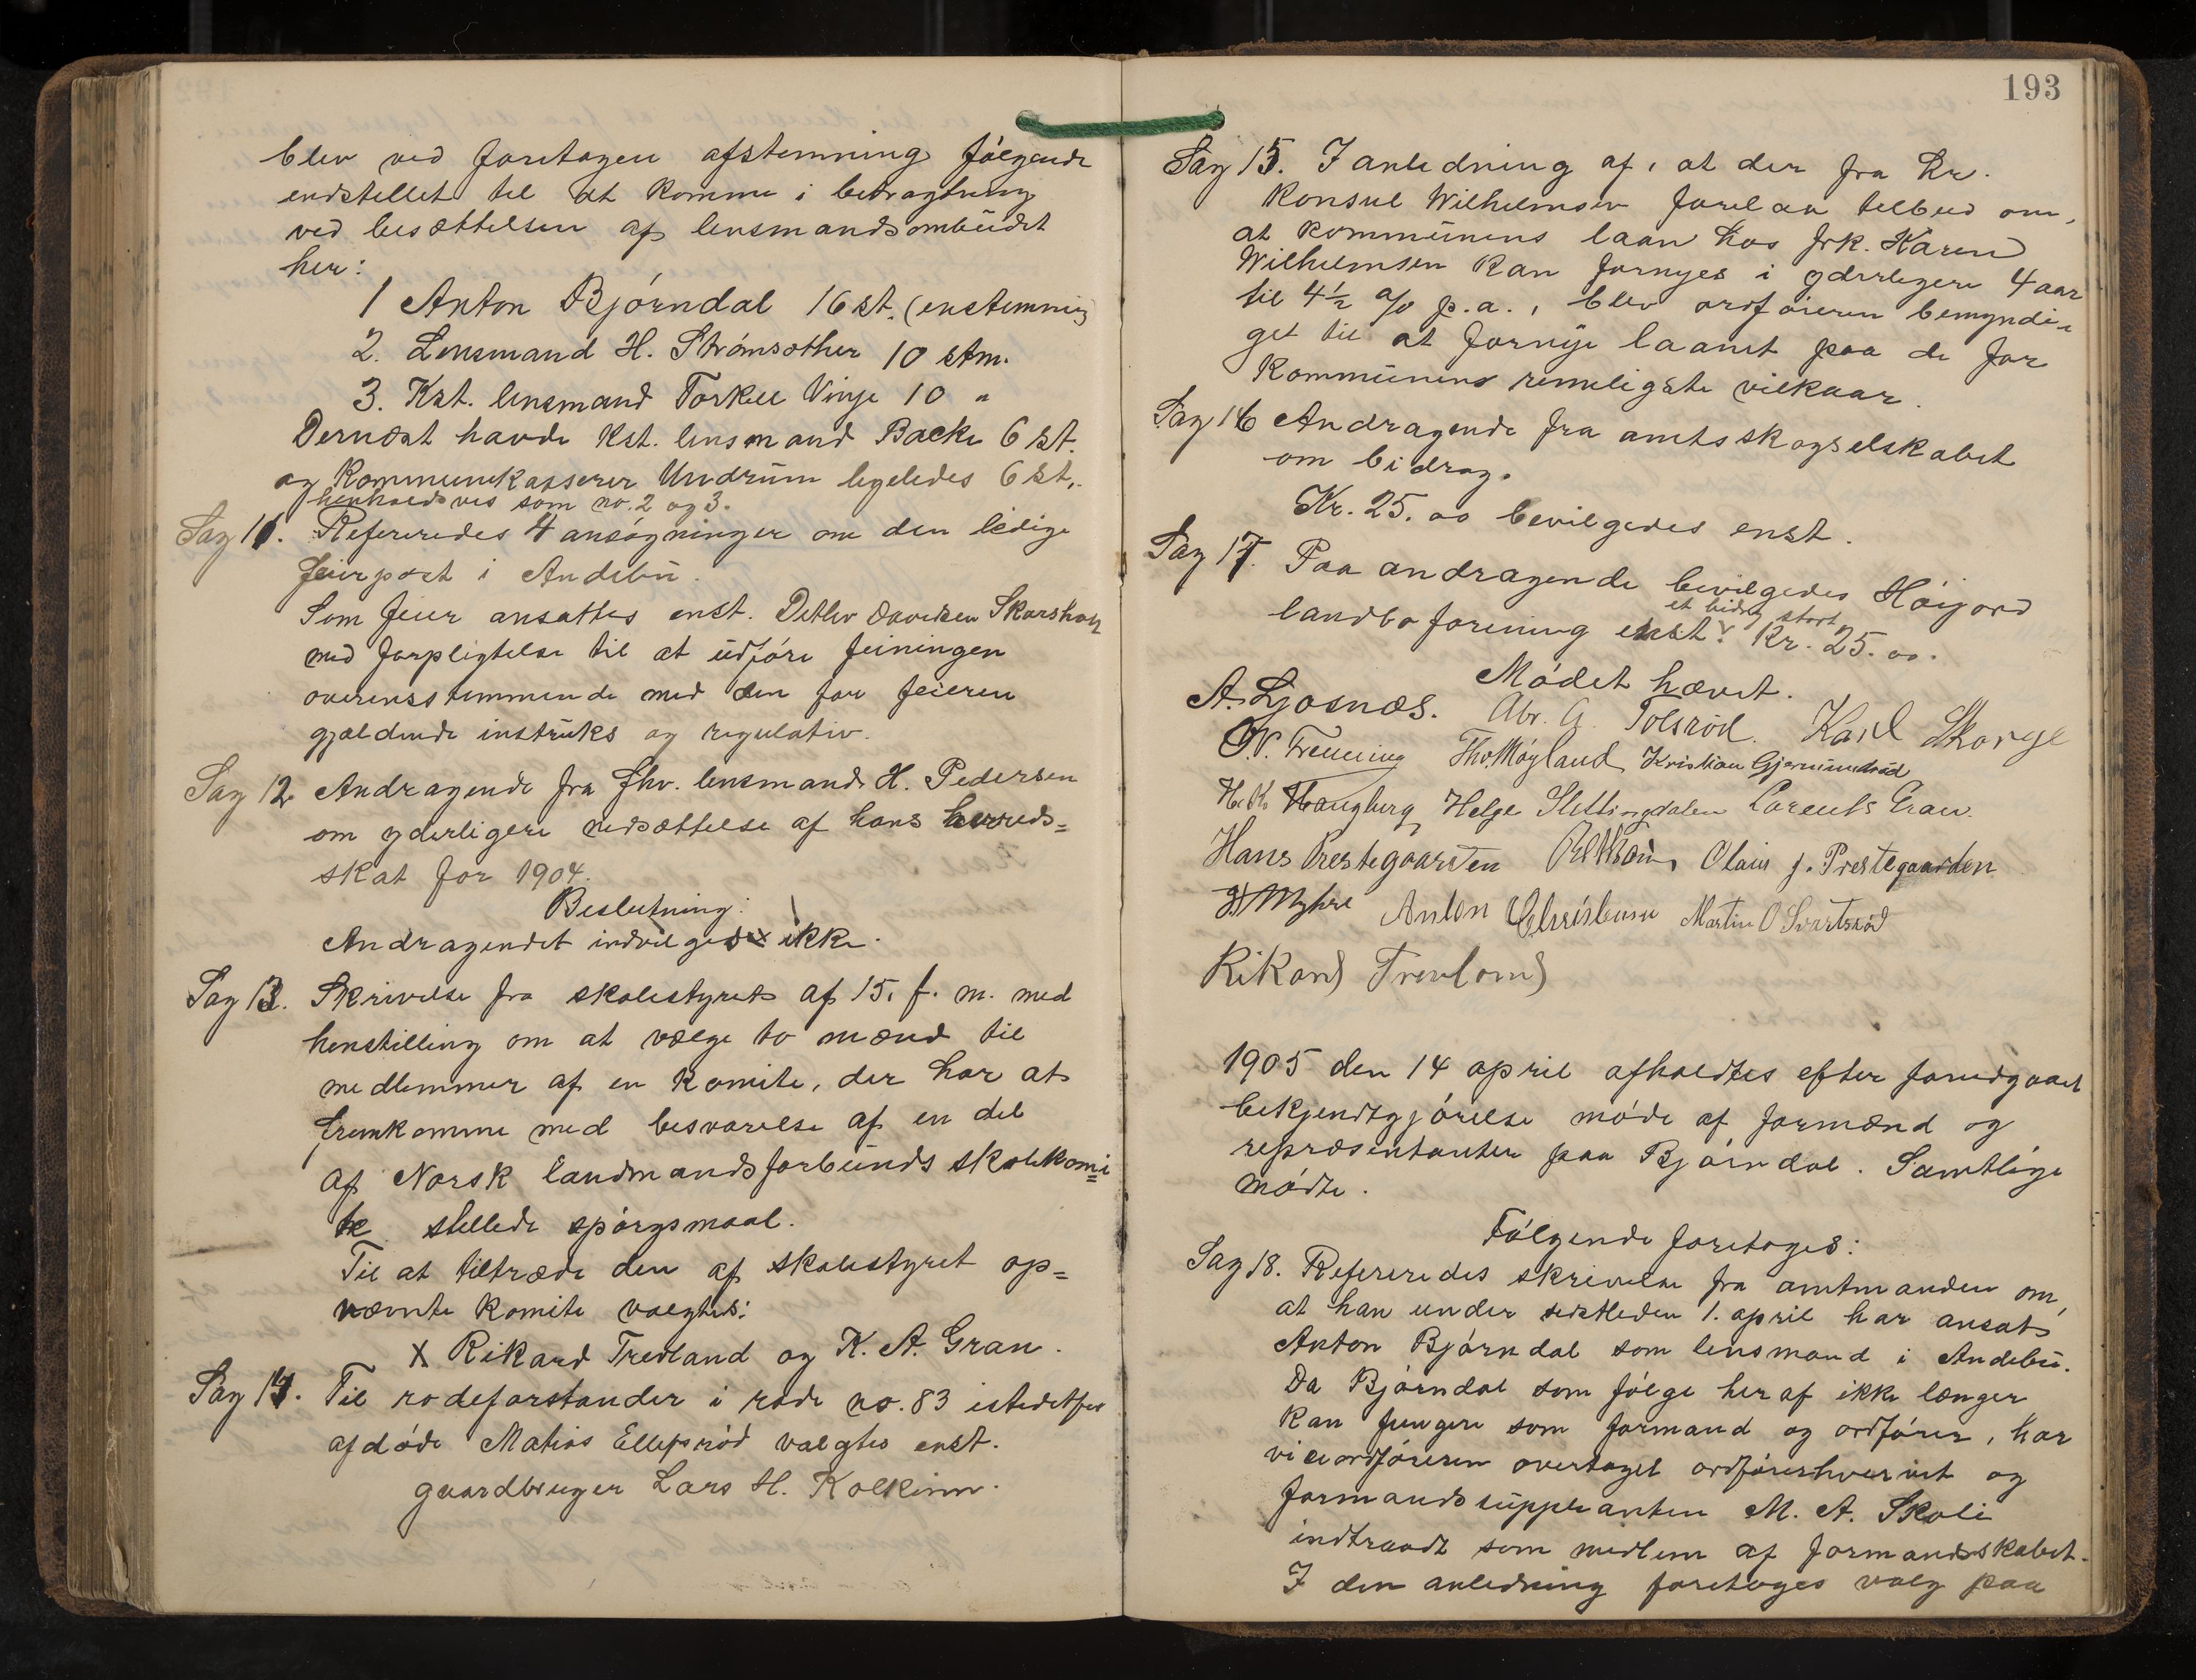 blev ved foretagen afstemning følgende
indstillet til at komme i betragtning
ved besættelsen af lensmandsombudet
her:
1 Anton Bjørndal 16 st. (enstemmig)
2. Lensmand H. Strømsæther 10 stm.
3. Kst. lensmand Torkell Vinje 10 "
Dernæst havde kst. lensmand Backe 6 st.
og kommunekasserer Undrum ligeledes 6 st.,
henholdsvis som no. 2 og 3.
Sag 11. Refereredes 4 ansøgninger om den ledige
feierpost i Andebu.
Som feier ansattes enst. Detlev Davidsen Skarsholt
med forpligtelse til at udføre feiningen
overensstemmende med den for feieren
gjældende instruks og regulativ.
Sag 12. Andragende fra fhv. lensmand H. Pedersen
om yderligere nedsættelse af hans herreds=
skat for 1904.
Beslutning:
Andragendet indvilgedes ikke.
Sag 13. Skrivelse fra skolestyret af 15. f. m. med
henstilling om at vælge to mænd til
medlemmer af en komite, der har at
fremkomme med besvarelse af en del
af Norsk Landmandsforbunds skolekomi=
te stillede spørgsmaal.
Til at tiltræde den af skolestyret op=
nævnte komite valgtes:
X Rikard Trevland og K. A. Gran.
Sag 14. Til rodeforstander i rode no. 83 istedetfor
afdøde Matias Ellefsrød valgtes enst.
gaardbruger Lars H. Kolkinn.
193
Sag 15. I anledning af, at der fra Hr.
Konsul Wilhelmsen forelaa tilbud om,
at kommunens laan hos frk. Karen
Wilhelmsen kan fornyes i yderligere 4 aar
til 4½ % p.a., blev ordføreren bemyndi-
get til at fornye laanet paa de for
kommunens rimeligste vilkaar.
Sag 16 Andragende fra amtsskogselskabet
om bidrag.
Kr. 25.00 bevilgedes enst.
Sag 17. Paa andragende bevilgedes Høijord
et bidrag stort
landboforening enst. Kr. 25.00.
Mødet hævet.
A. Ljosnæs. Abr. A. Tolsrød. Karl Skorge
O. N. Trevling Tho. Møyland Kristian Gjermundrød
H. K. Haugberg Helge Slettingdalen Lorents Gran.
Hans Prestegaarden Olaus J. Prestegaarden
H Myhre Anton Christensen Martin O Svartsrød
Rikard Trevland
1905 den 14 april afholdtes efter foredgaaet
bekjendtgjørelse møde af formænd og
repræsentanter paa Bjørndal. Samtlige
mødte.
Følgende foretoges:
Sag 18. Refereredes skrivelse fra amtmanden om,
at han under sidstleden 1. april har ansat
Anton Bjørndal som lensmand i Andebu.
Da Bjørndal som følge heraf ikke længer
kan fungere som formand og ordfører, har
viceordføreren overtaget ordførerhvervet og
formandssuppleanten M. A. Skoli
indtraadt som medlem af formandsskabet.
I den anledning foretoges valg paa